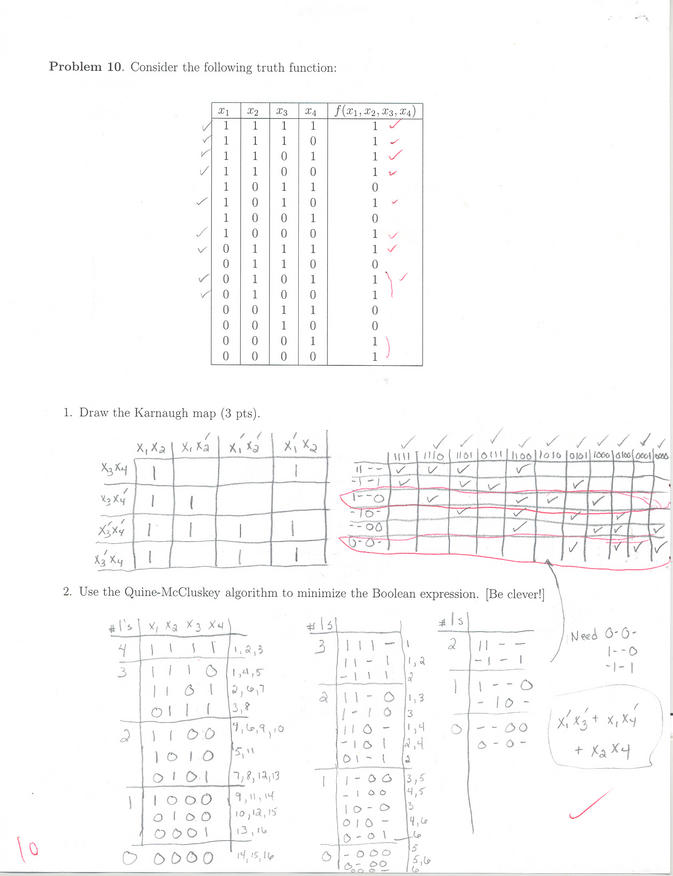 Problem 10. Consider the following truth function:
x1 x2 x3 x4 f(x1, x2, x3, x4)
✓ 1 1 1 1 1 ✓
✓ 1 1 1 0 1 ✓
✓ 1 1 0 1 1 ✓
✓ 1 1 0 0 1 ✓
1 0 1 1 0
✓ 1 0 1 0 1 ✓
1 0 0 1 0
✓ 1 0 0 0 1 ✓
✓ 0 1 1 1 1 ✓
0 1 1 0 0
✓ 0 1 0 1 1 ✓
✓ 0 1 0 0 1
0 0 1 1 0
0 0 1 0 0
0 0 0 1 1
0 0 0 0 1
1. Draw the Karnaugh map (3 pts).
x1x2 x1x2' x1'x2' x1'x2
x3x4 1 1
x3x4' 1 1
x3'x4' 1 1 1 1
x3'x4 1 1 1
✓ ✓ ✓ ✓ ✓ ✓ ✓ ✓ ✓ ✓ ✓
1111 1110 1101 0111 1100 1010 0101 1000 0100 0001 0000
11-- ✓ ✓ ✓ ✓
-1-1 ✓ ✓ ✓ ✓
1--0 ✓ ✓ ✓ ✓
-10- ✓ ✓ ✓ ✓
--00 ✓ ✓ ✓ ✓
0-0- ✓ ✓ ✓ ✓
2. Use the Quine-McCluskey algorithm to minimize the Boolean expression. [Be clever!]
#1's x1 x2 x3 x4
4 1 1 1 1 1,2,3
3 1 1 1 0 1,4,5
1 1 0 1 2,6,7
0 1 1 1 3,8
2 1 1 0 0 4,6,9,10
1 0 1 0 5,11
0 1 0 1 7,8,12,13
1 1 0 0 0 9,11,14
0 1 0 0 10,12,15
0 0 0 1 13,16
0 0 0 0 0 14,15,16
#1s
3 1 1 1 - 1
1 1 - 1 1,2
- 1 1 1 2
2 1 1 - 0 1,3
1 - 1 0 3
1 1 0 - 1,4
- 1 0 1 2,4
0 1 - 1 2
1 1 - 0 0 3,5
- 1 0 0 4,5
1 0 - 0 3
0 1 0 - 4,6
0 - 0 1 6
0 - 0 0 0 5
0 - 0 0 5,6
0 0 0 - 6
#1s
2 1 1 - -
- 1 - 1
1 1 - - 0
- 1 0 -
0 - - 0 0
0 - 0 -
Need 0-0-
1--0
-1-1
x1'x3' + x1x4'
+ x2x4
✓
10